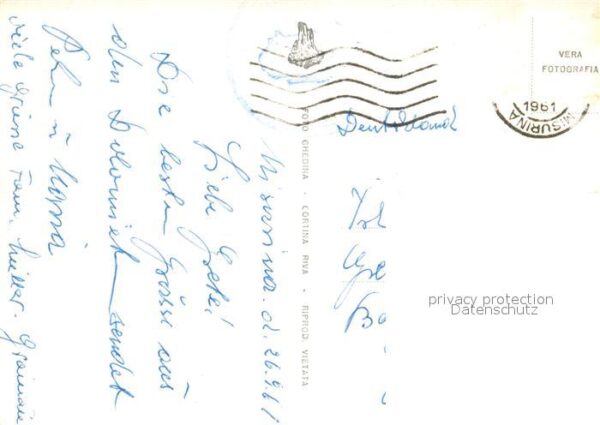 Misurina. d. 26.9.61
Liebe Grete!
Die besten Grüsse aus
den Dolomiten sendet
Peter u. Maria
viele Grüsse Fam. Müller.
Deutschland
VERA
FOTOGRAFIA
1961
MISURINA
FOTO GHEDINA - CORTINA RIVA - RIPROD. VIETATA
privacy protection
Datenschutz